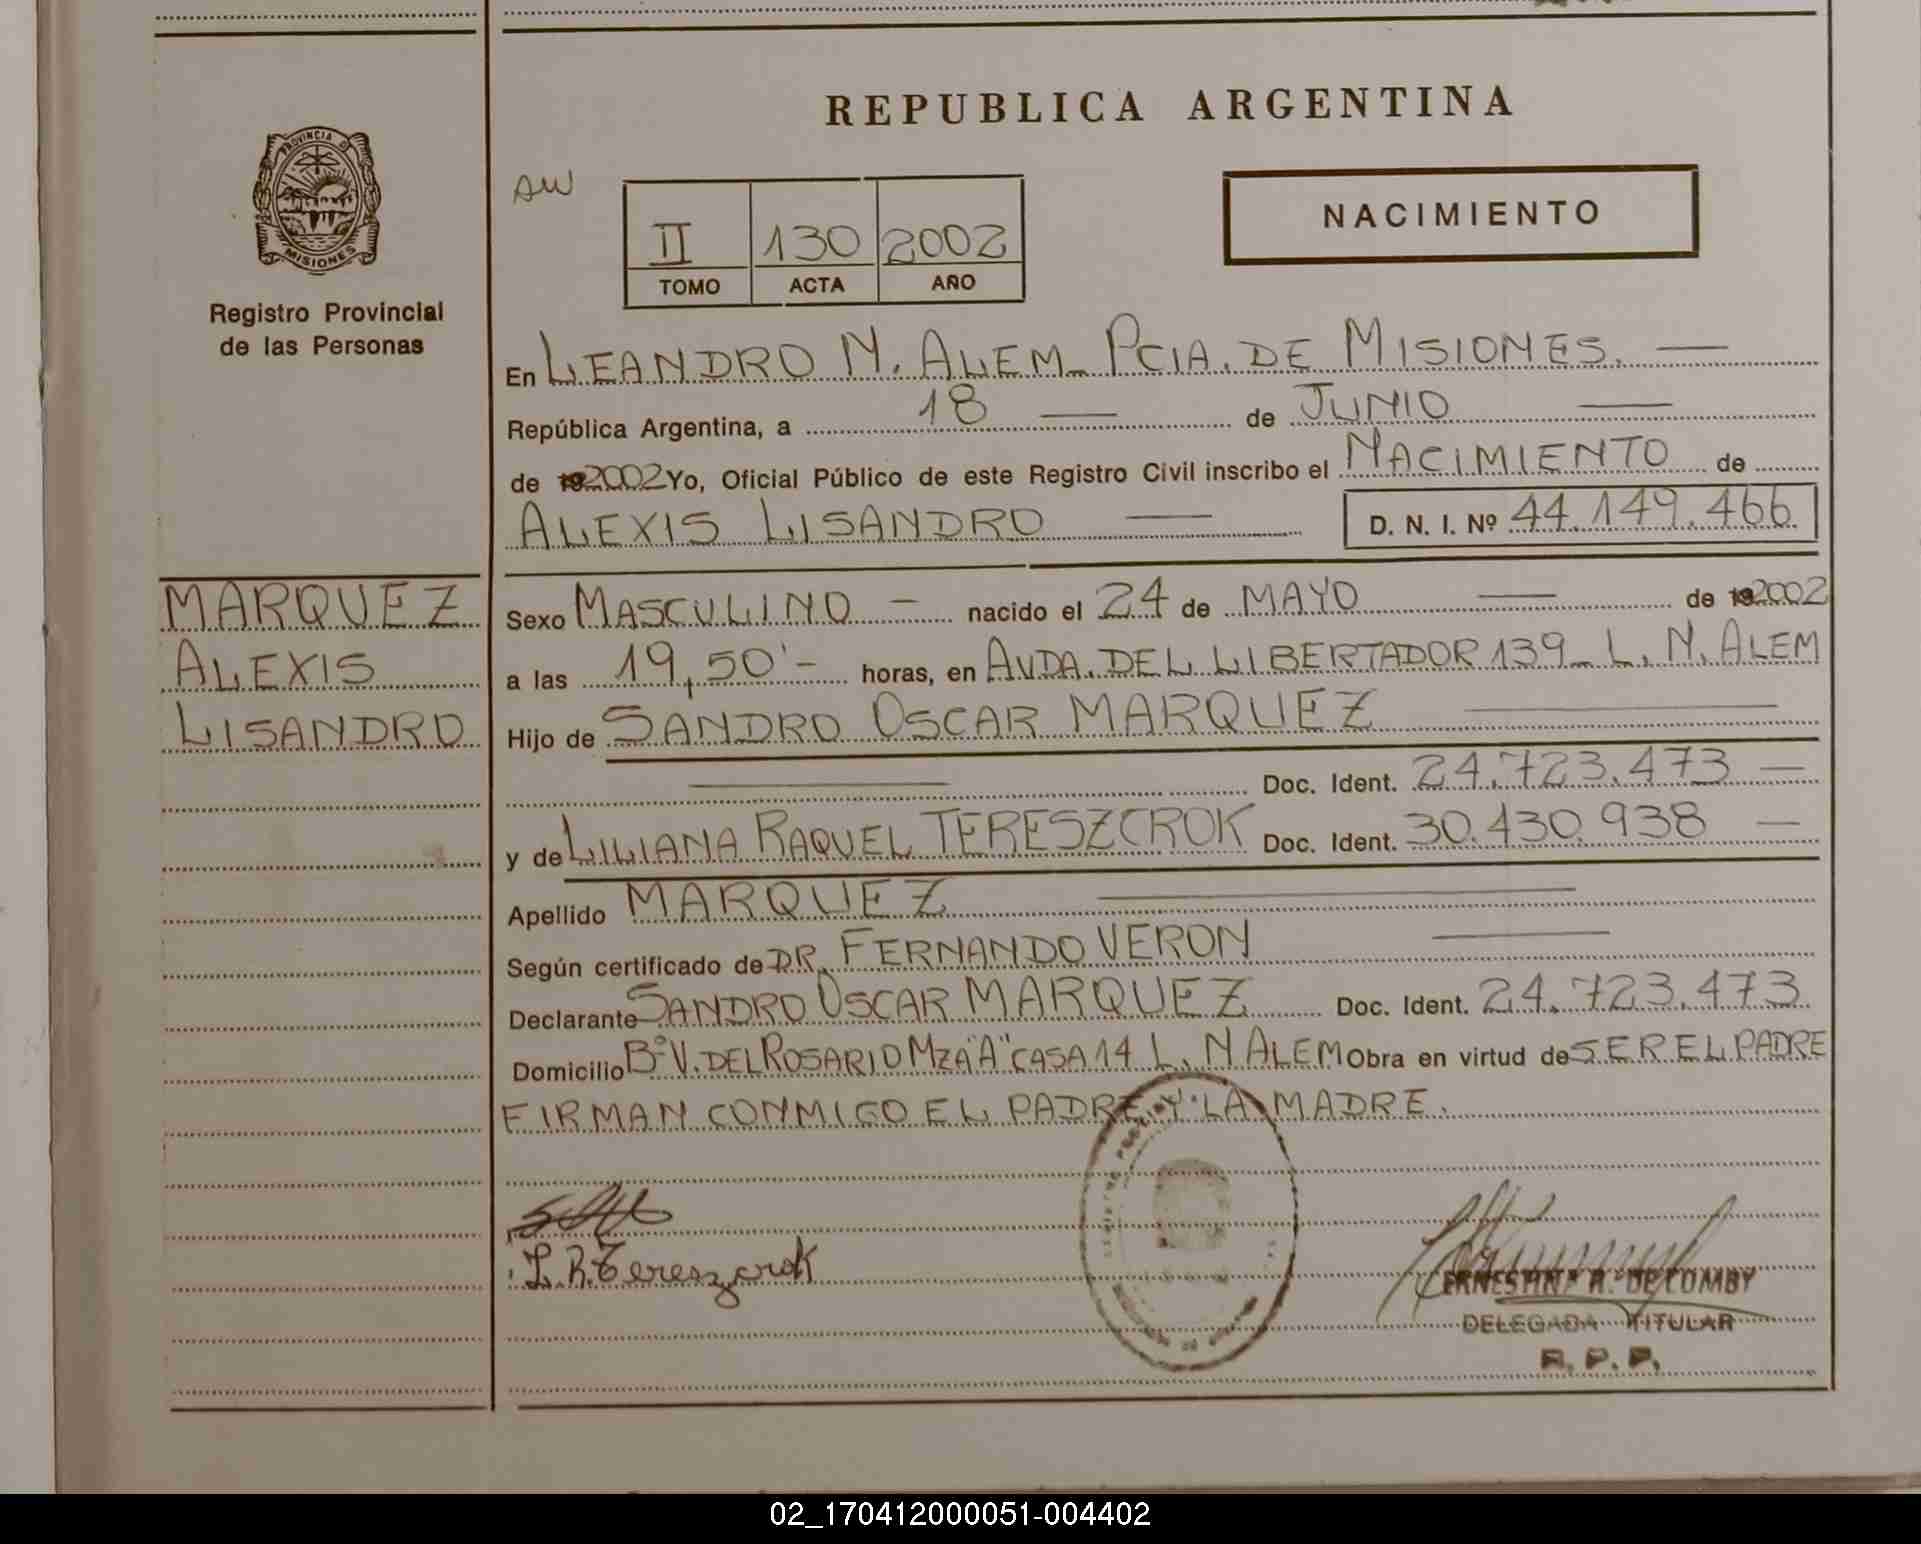 REPUBLICA ARGENTINA
PROVINCIA D MISIONES
Registro Provincial
de las Personas
AW
II 130 2002
TOMO ACTA AÑO
NACIMIENTO
En LEANDRO N. ALEM_ PCIA. DE MISIONES. —
República Argentina, a 18 — de JUNIO —
de 192002 Yo, Oficial Público de este Registro Civil inscribo el NACIMIENTO de
ALEXIS LISANDRO — D. N. I. Nº 44.149.466
MARQUEZ
ALEXIS
LISANDRO
Sexo MASCULINO – nacido el 24 de MAYO — de 192002
a las 19,50'- horas, en AVDA. DEL LIBERTADOR 139_ L. N. ALEM
Hijo de SANDRO OSCAR MARQUEZ —
— Doc. Ident. 24.723.473 —
y de LILIANA RAQUEL TERESZCROK Doc. Ident. 30.430.938 —
Apellido MARQUEZ —
Según certificado de DR. FERNANDO VERON —
Declarante SANDRO OSCAR MARQUEZ Doc. Ident. 24.723.473
Domicilio Bº V. DEL ROSARIO MZA "A" CASA 14 L. N ALEM Obra en virtud de SER EL PADRE
FIRMAN CONMIGO EL PADRE Y LA MADRE.
L. R. Tereszcrok
ERNESTINA R. DE COMBY
DELEGADA TITULAR
R. P. P.
02_170412000051-004402